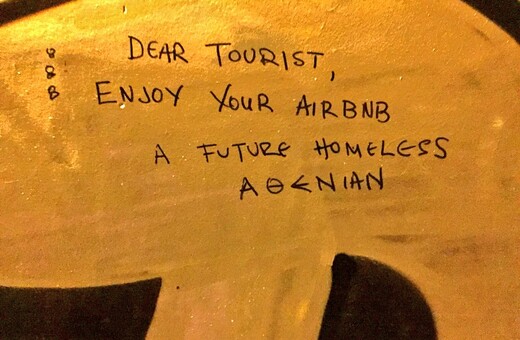 DEAR TOURIST,
ENJOY YOUR AIRBNB
A FUTURE HOMELESS
AΘ<NIAN